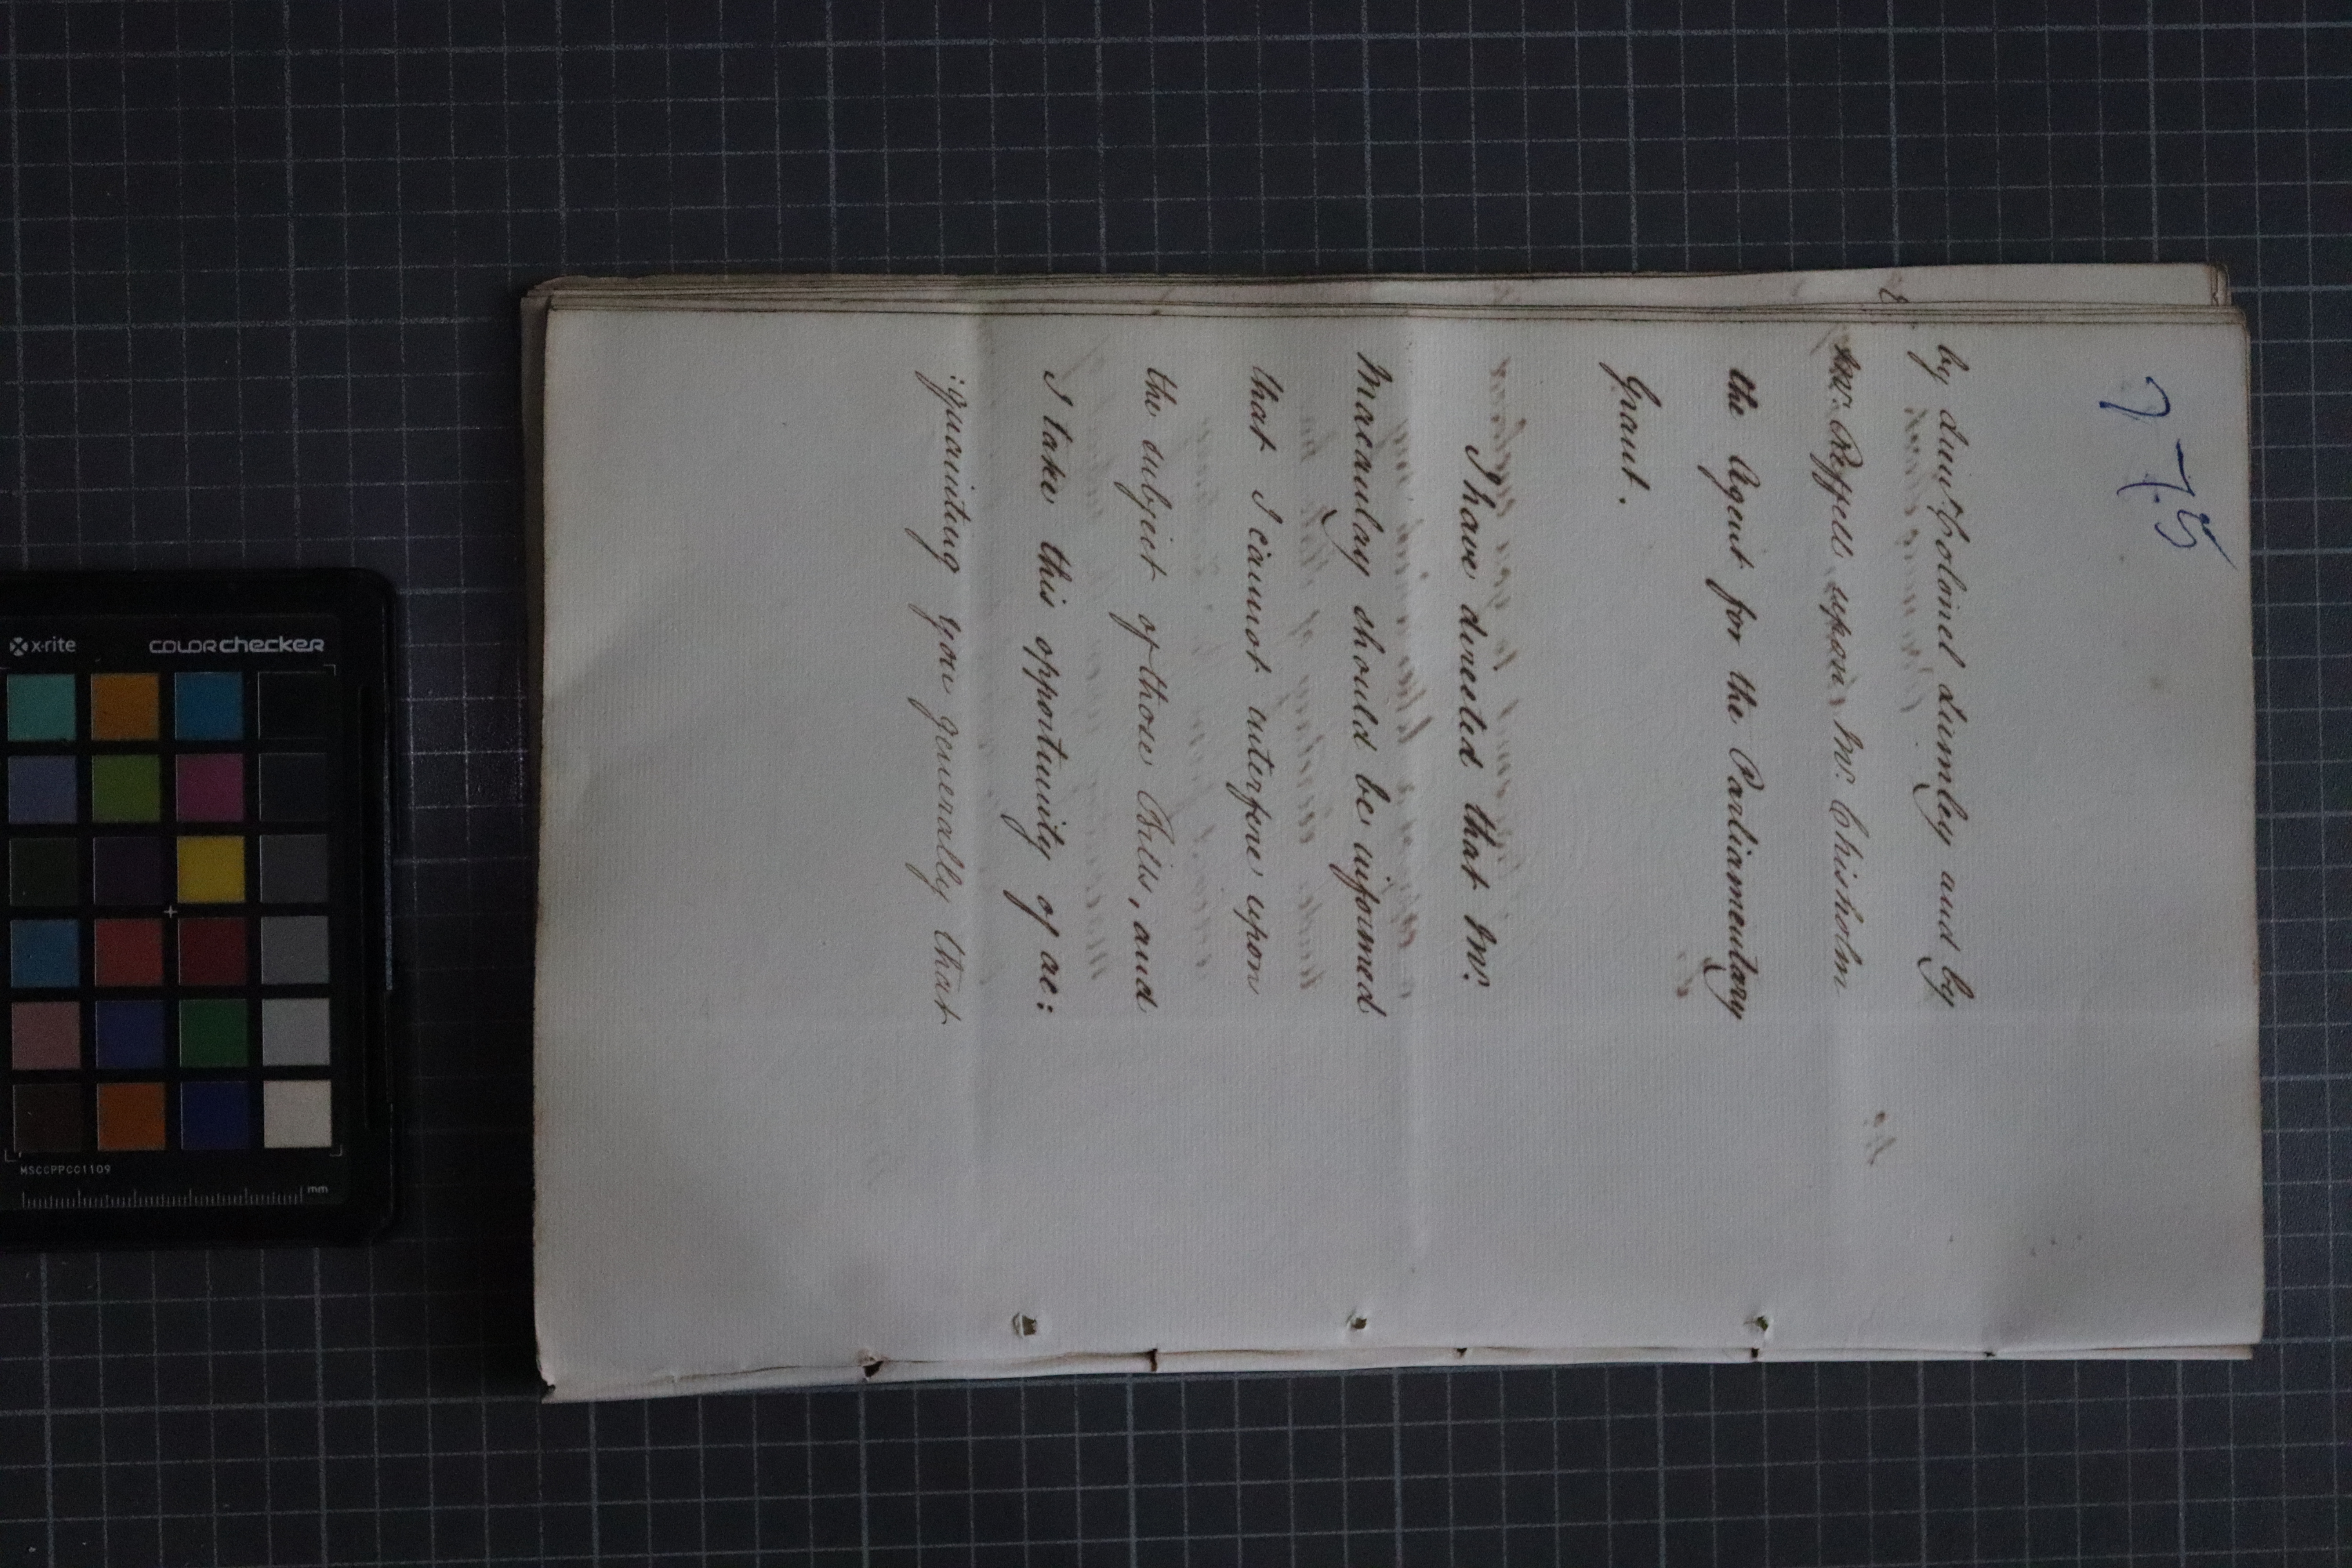 775
by Lieut. Colonel Lumley and by
Mr. Reffell upon Mr. Chisholm
the Agent for the Parliamentary
Grant.
I have directed that Mr.
Macaulay should be informed
that I cannot interfere upon
the subject of those Bills, and
I take this opportunity of ac:
:quainting you generally that
x-rite
COLORchecker
MSCCPPCC1109
mm